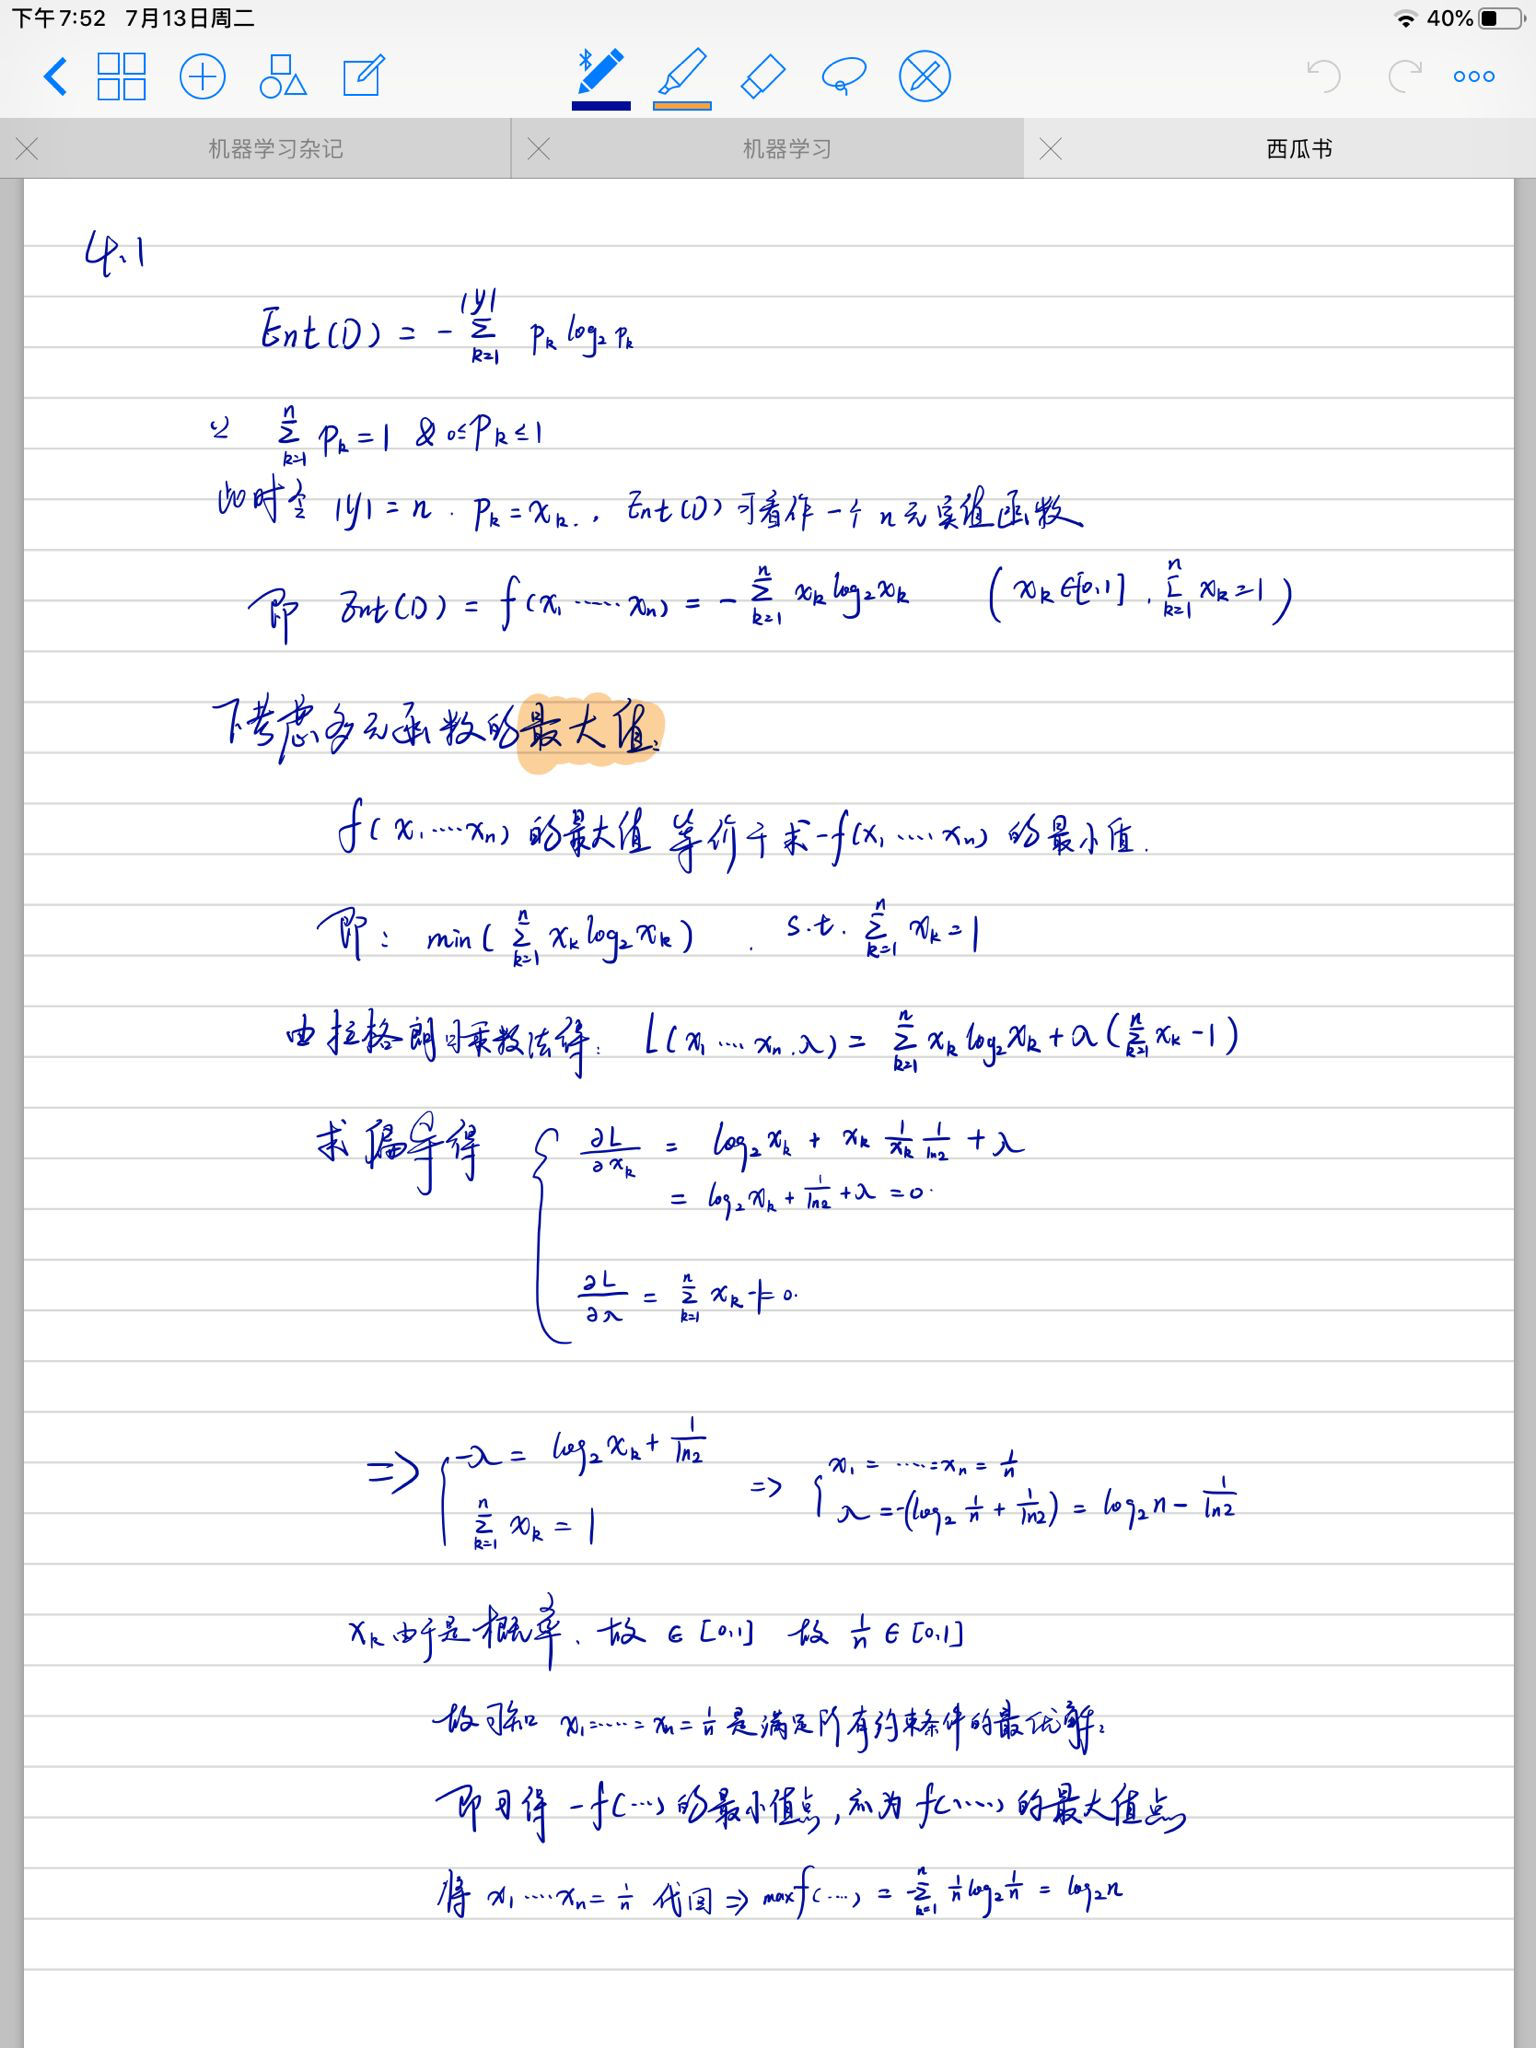 下午7:52 7月13日周二 40%
机器学习杂记 机器学习 西瓜书
4.1
Ent(D) = - ∑_{k=1}^{|y|} p_k log₂ p_k
∑_{k=1}^{n} p_k = 1 & 0≤p_k≤1
此时令 |y| = n . p_k = x_k ., Ent(D) 可看作一个 n 元实值函数
即 Ent(D) = f(x₁ ...... x_n) = - ∑_{k=1}^{n} x_k log₂ x_k ( x_k ∈[0,1] . ∑_{k=1}^{n} x_k = 1 )
下考虑多元函数的最大值:
f(x₁ ....x_n) 的最大值 等价于求 -f(x₁ .... x_n) 的最小值.
即: min( ∑_{k=1}^{n} x_k log₂ x_k ) . s.t. ∑_{k=1}^{n} x_k = 1
由拉格朗日乘数法得: L(x₁ .... x_n . λ) = ∑_{k=1}^{n} x_k log₂ x_k + λ ( ∑_{k=1}^{n} x_k - 1 )
求偏导得 { ∂L/∂x_k = log₂ x_k + x_k 1/x_k 1/ln2 + λ
= log₂ x_k + 1/ln2 + λ = 0.
∂L/∂λ = ∑_{k=1}^{n} x_k - 1 = 0.
=> { -λ = log₂ x_k + 1/ln2 => { x₁ = ..... = x_n = 1/n
∑_{k=1}^{n} x_k = 1 λ = -(log₂ 1/n + 1/ln2) = log₂ n - 1/ln2
x_k 由于是概率. 故 ∈ [0,1] 故 1/n ∈ [0,1]
故可知 x₁ = ..... = x_n = 1/n 是满足所有约束条件的最优解.
即可得 -f(...) 的最小值点, 亦为 f(.....) 的最大值点
将 x₁ .... x_n = 1/n 代回 => max f(....) = -∑_{k=1}^{n} 1/n log₂ 1/n = log₂ n